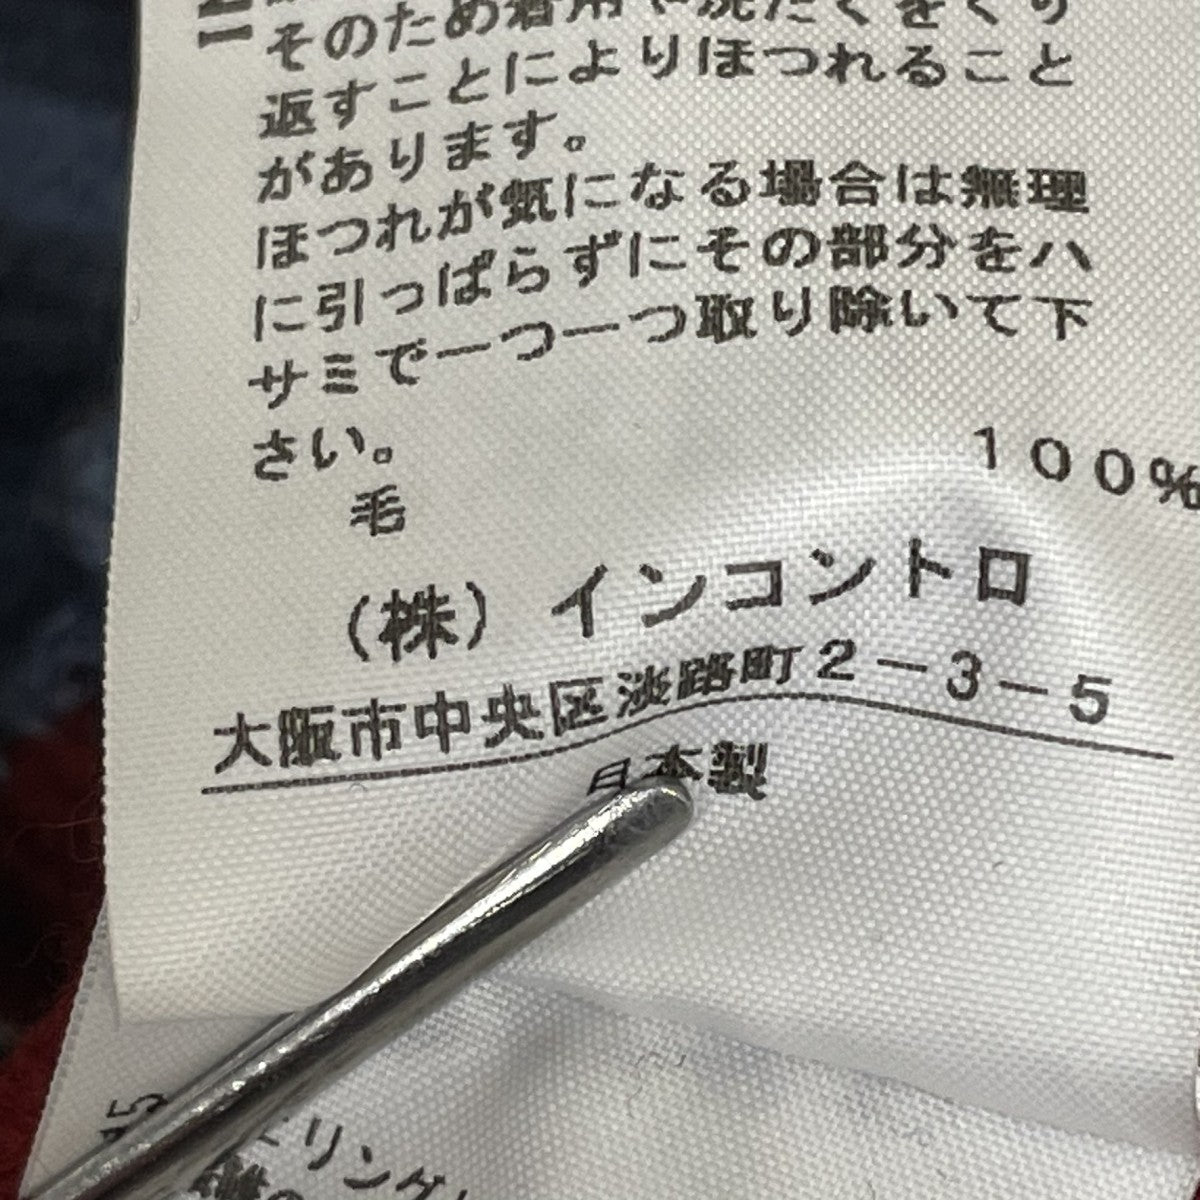 そのため着用や洗たくをくり
返すことによりほつれること
があります。
ほつれが気になる場合は無理
に引っぱらずにその部分をハ
サミで一つ一つ取り除いて下
さい。
毛 100%
(株) インコントロ
大阪市中央区淡路町2-3-5
日本製
リング